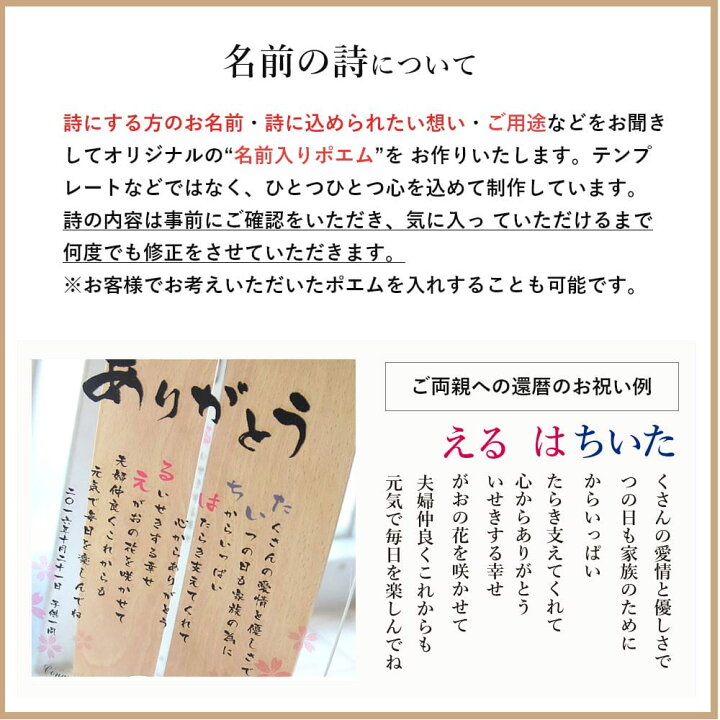 名前の詩について
詩にする方のお名前・詩に込められたい想い・ご用途などをお聞き
してオリジナルの“名前入りポエム”を お作りいたします。テンプ
レートなどではなく、ひとつひとつ心を込めて制作しています。
詩の内容は事前にご確認をいただき、気に入っ ていただけるまで
何度でも修正をさせていただきます。
※お客様でお考えいただいたポエムを入れすることも可能です。
ありがとう
たくさんの愛情と優しさで
いつの日も家族の為に
ちからいっぱい
はたらき支えてくれて
心からありがとう
るいせきする幸せ
えがおの花を咲かせて
夫婦仲良くこれからも
元気で毎日を楽しんでね
二〇一六年十月二十一日 子供一同
ご両親への還暦のお祝い例
たくさんの愛情と優しさで
いつの日も家族のために
ちからいっぱい
はたらき支えてくれて
心からありがとう
るいせきする幸せ
えがおの花を咲かせて
夫婦仲良くこれからも
元気で毎日を楽しんでね